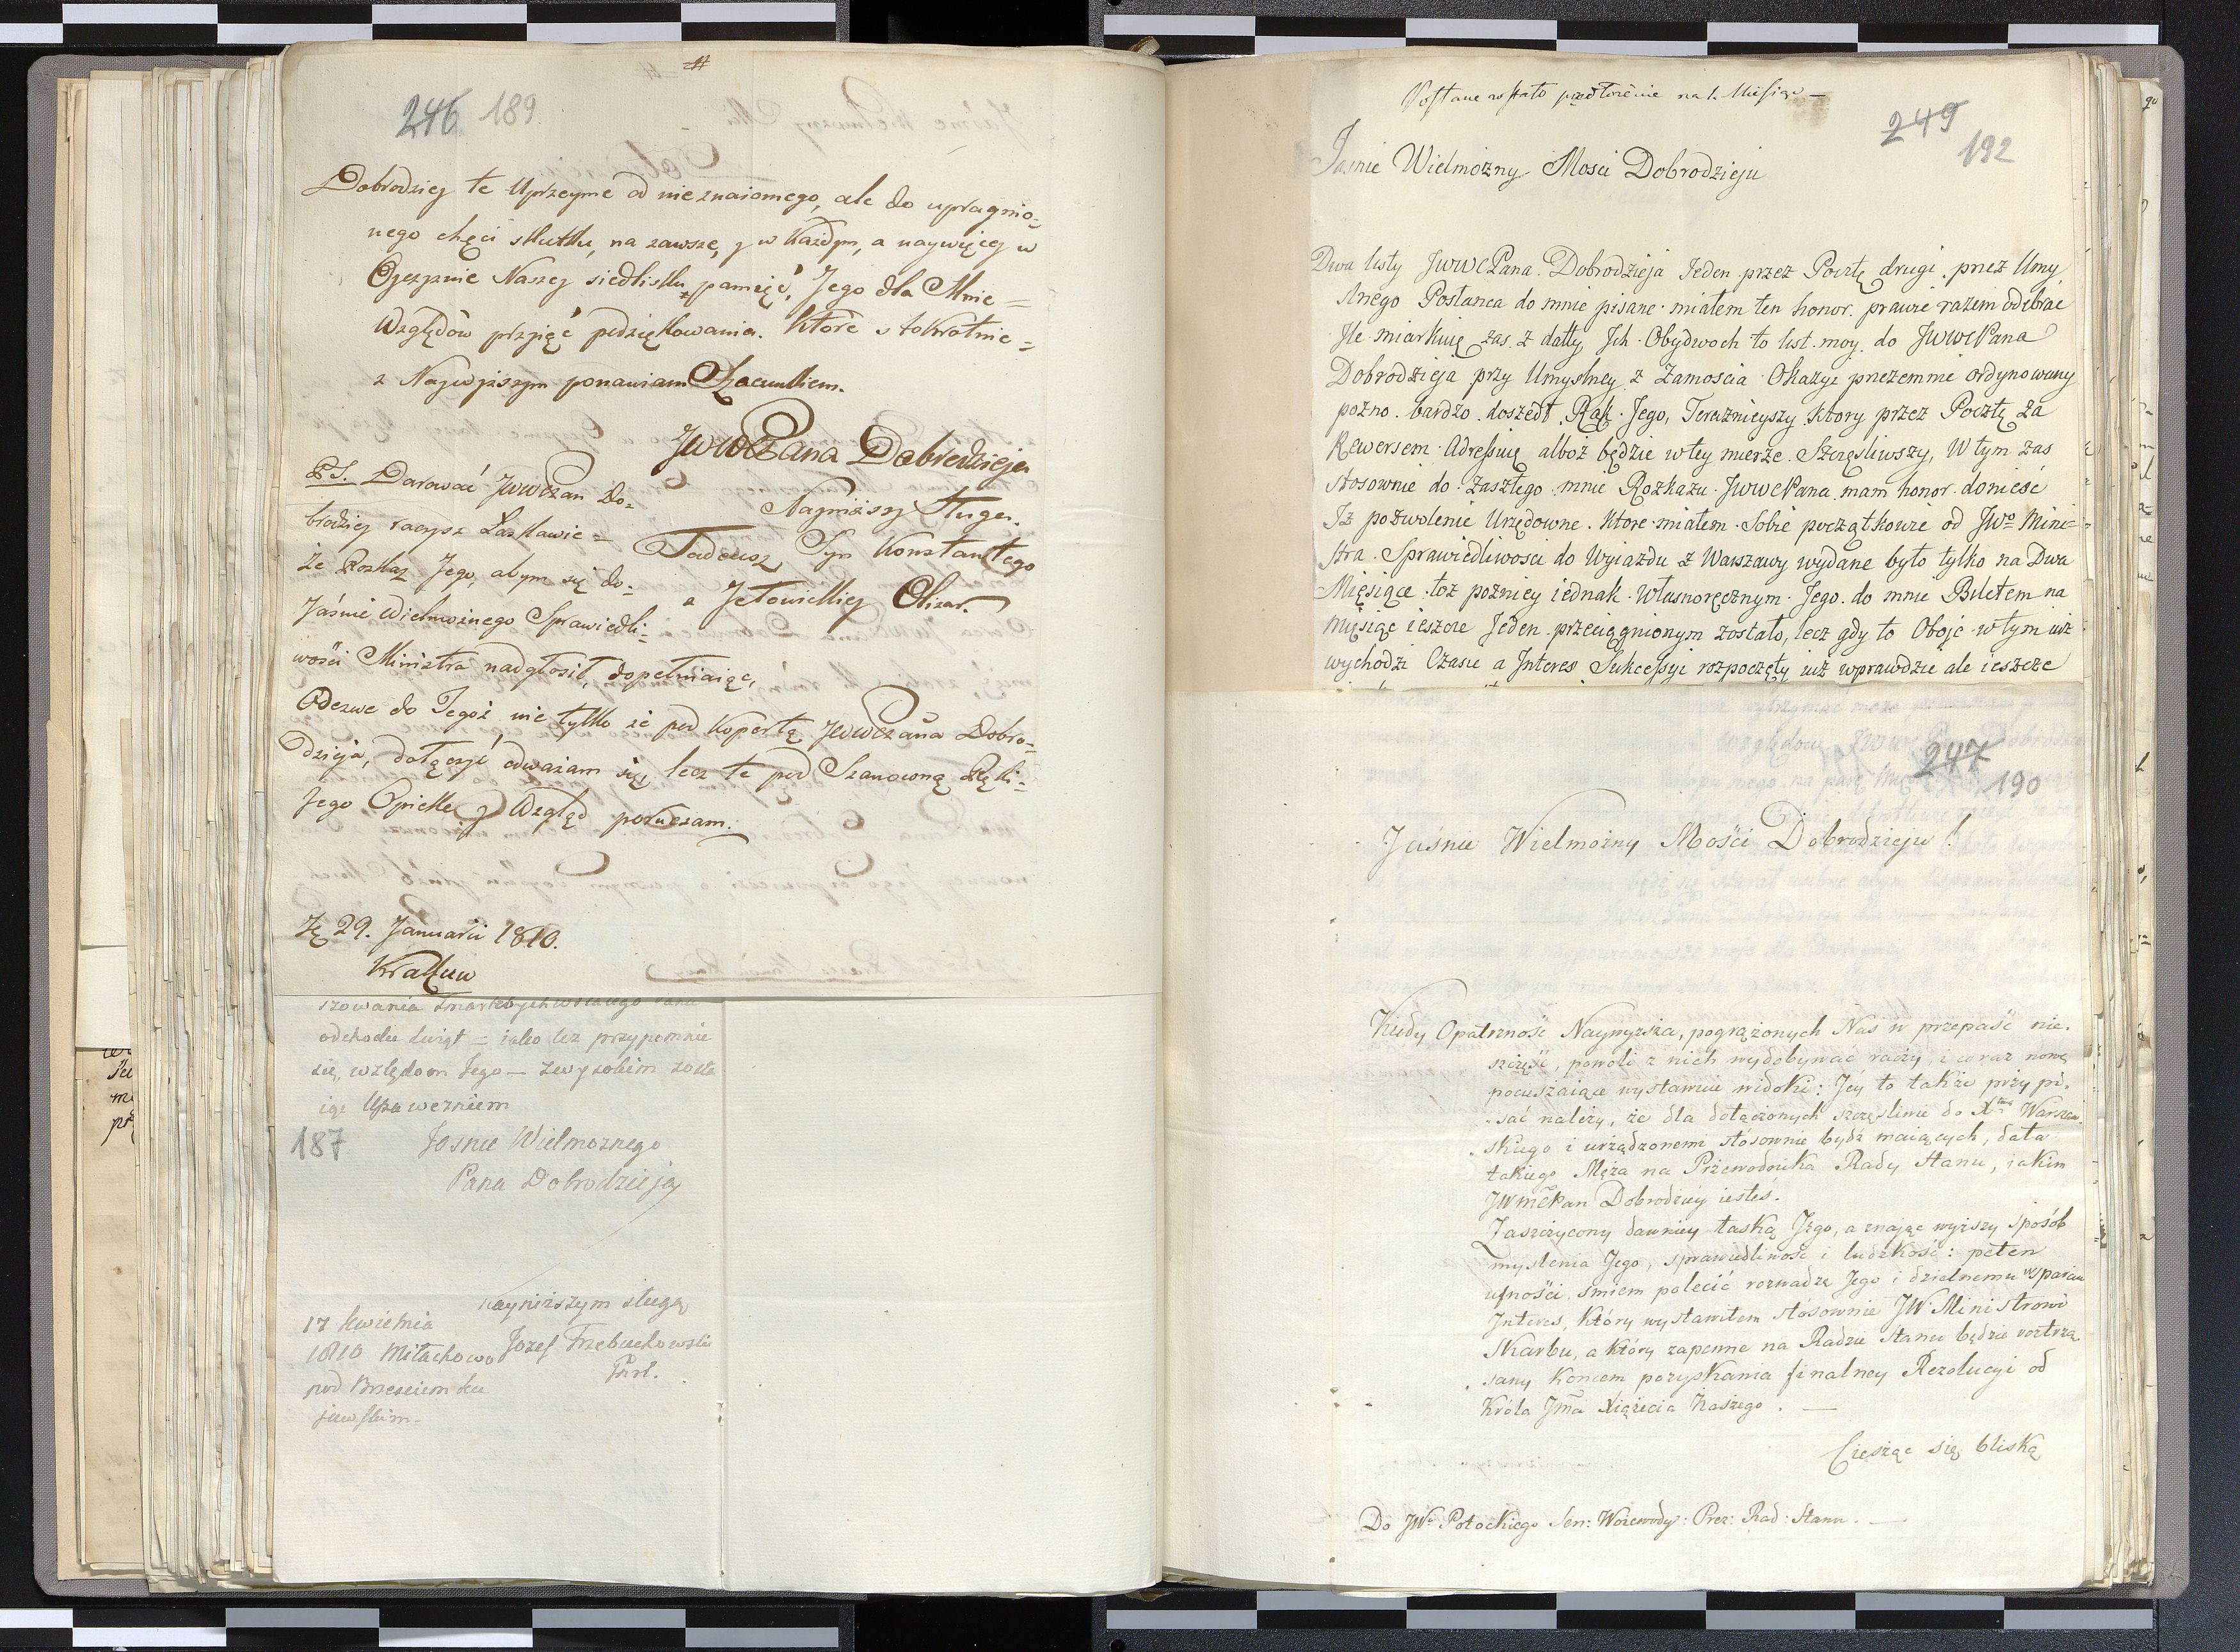 246 189
Dobrodziej te Uprzeyme od nieznaiomego, ale do upragnio=
nego chęci skutku, na zawsze, y w Każdym, a naywięcey w
Oyczyznie Naszey siedlisku pamięć, Jego dla Mnie=
Względów przyjąć podziękowania. Które stokrotnie=
z Naywyższym ponawiam Szacunkiem.
JWWCPana Dobrodzieja
Nayniższy Sługa.
Tadeusz Syn Konstantego
z Jełowickiey Olizar.
PS. Darować JWWCPan Do=
brodziey raczysz Łaskawie=
że Rozkaz Jego, abym się do=
Jaśnie Wielmożnego Sprawiedli=
wości Ministra nadgłosił, dopełniaiąc,
Odezwe do Tegoż nie tylko że pod Kopertą JWWCPana Dobro=
dzieja, dołączyć odważam się, lecz te pod Szanowną Ręki=
Jego Opiekę y Wzgląd poruczam.
29. Januarii 1810.
Kraków
odchodu świąt = iako też przypomnie
się, względom Jego –
Uszawezniem
187
Jasnie Wielmoznego
Pana Dobrodzieja
nayniższym sługą
Jozef Trzebuchowski
17 kwietnia
1810 Miłachowo
pod Brzesciem ku
jawskim –
249
192
Jasnie Wielmożny Mosci Dobrodzieju
Dwa listy JWWCPana Dobrodzieja Jeden przez Pocztę drugi przez Umy
slnego Posłanca do mnie pisane miałem ten honor prawie razem odebrac
Ile miarkuię zas z datty Ich Obydwoch to list moy do JWWCPana
Dobrodzieja przy Umyslney z Zamoscia Okazyi przezemnie ordynowany
pozno bardzo doszedł Rąk Jego, Teraznieyszy ktory przez Pocztę za
Rewersem Adressuię alboż będzie w tey mierze Szczęsliwszy, W tym zas
stosownie do zaszłego mnie Rozkazu JWWCPana mam honor donieść
Iż pozwolenie Urzędowne Ktore miałem Sobie początkowie od JWo Mini=
stra Sprawiedliwosci do Wyiazdu z Warszawy wydane było tylko na Dwa
Miesiące toż pozniey iednak Własnoręcznym Jego do mnie Biletem na
Miesiąc ieszcze Jeden przeciągnionym zostało, lecz gdy to Oboje w tym iuż
wychodzi Czasie a Interes Sukcessyi rozpoczęty iuż wprawdzie ale ieszcze
247
190
Jaśnie Wielmożny Mości Dobrodzieju!
Kiedy Opatrzność Naywyższa, pogrążonych Nas w przepaść nie.
szczęść, powoli z nich wydobywać raczy, i coraz nowe,
pocieszaiące wystawuie widoki: Jéy to także przypi.
sać należy, że dla dołączonych szczęśliwie do Xtwa Warszaw.
skiego i urządzonemi stosownie bydź maiących, dała
takiego Męża na Przewodnika Rady Stanu, iakim
JWmćPan Dobrodziéy iesteś.
Zaszczycony dawniey łaską Jego, a znaiąc wyższy sposób
myslenia Jego, sprawiedliwość i ludzkość: pełen
ufności, śmiem polecić rozwadze Jego i dzielnemu wsparciu
Interes, który wystawiłem stósownie JW. Ministrowi
Skarbu, a który zapewne na Radzie Stanu będzie roztrzą.
sany końcem pozyskania finalney Rezolucyi od
Króla Jmci Xiążęcia Naszego. —
Ciesząc się bliską
Do JWo Potockiego Sen: Woiewody: Prez: Rad: Stanu. —